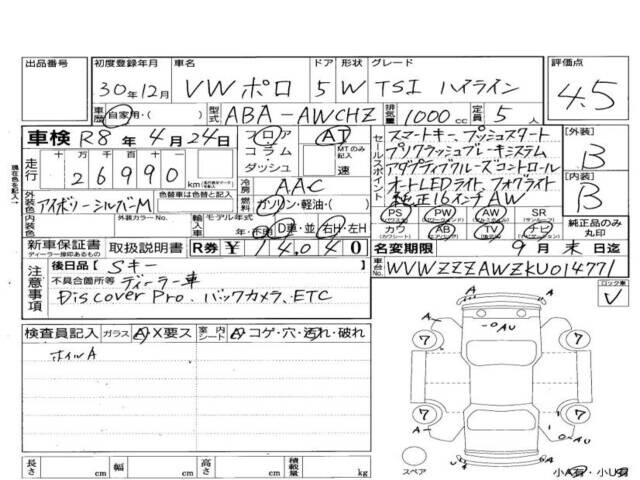 出品番号
初度登録年月 車名 ドア 形状 グレード 評価点
30年12月 VW ポロ 5 W TSI ハイライン 4.5
車歴 自家用・( ) 型式 ABA-AWCHZ 排気量 1000cc 定員 5人
車検 R8年4月24日
フロア
コラム・
ダッシュ
AT
MTのみ記入
速
走行 十 万 千 百 十 一
26990 km
冷房 AAC
燃料 ガソリン・軽油・( )
外装色 アイボリーシルバーM
色替車は色替と記入
内装色
外装カラーNo.
輸入車 モデル年式 D車・並 右H・左H
年・不明
セールスポイント
スマートキー、プッシュスタート
プリクラッシュブレーキシステム
アダプティブクルーズコントロール
オートLEDライト、フォグライト
純正16インチAW
PS PW AW SR
カワ AB TV ナビ
[外装]
B
[内装]
B
純正品のみ
丸印
新車保証書 取扱説明書 R券 ¥14,040
ディーラー捺印あるもの
名変期限 9月末日迄
車台No. WVWZZZAWZKU014771
注意事項
後日品【 Sキー
不具合箇所等 ディーラー車
Discover Pro、バックカメラ、ETC
ロック車
検査員記入 ガラス A・X要ス 室内シート コゲ・穴・汚れ・破れ
ホイルA
7 7
7 7
A A
-0 AU
A A
スペア
小A有・小U有
長さ cm 幅 cm 高さ cm 積載量 kg